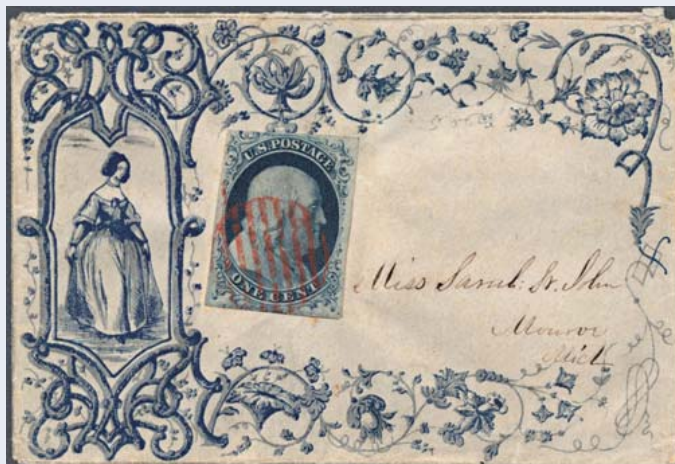 U.S. POSTAGE
ONE CENT
Miss Sarah St. John
Monroe
Mich